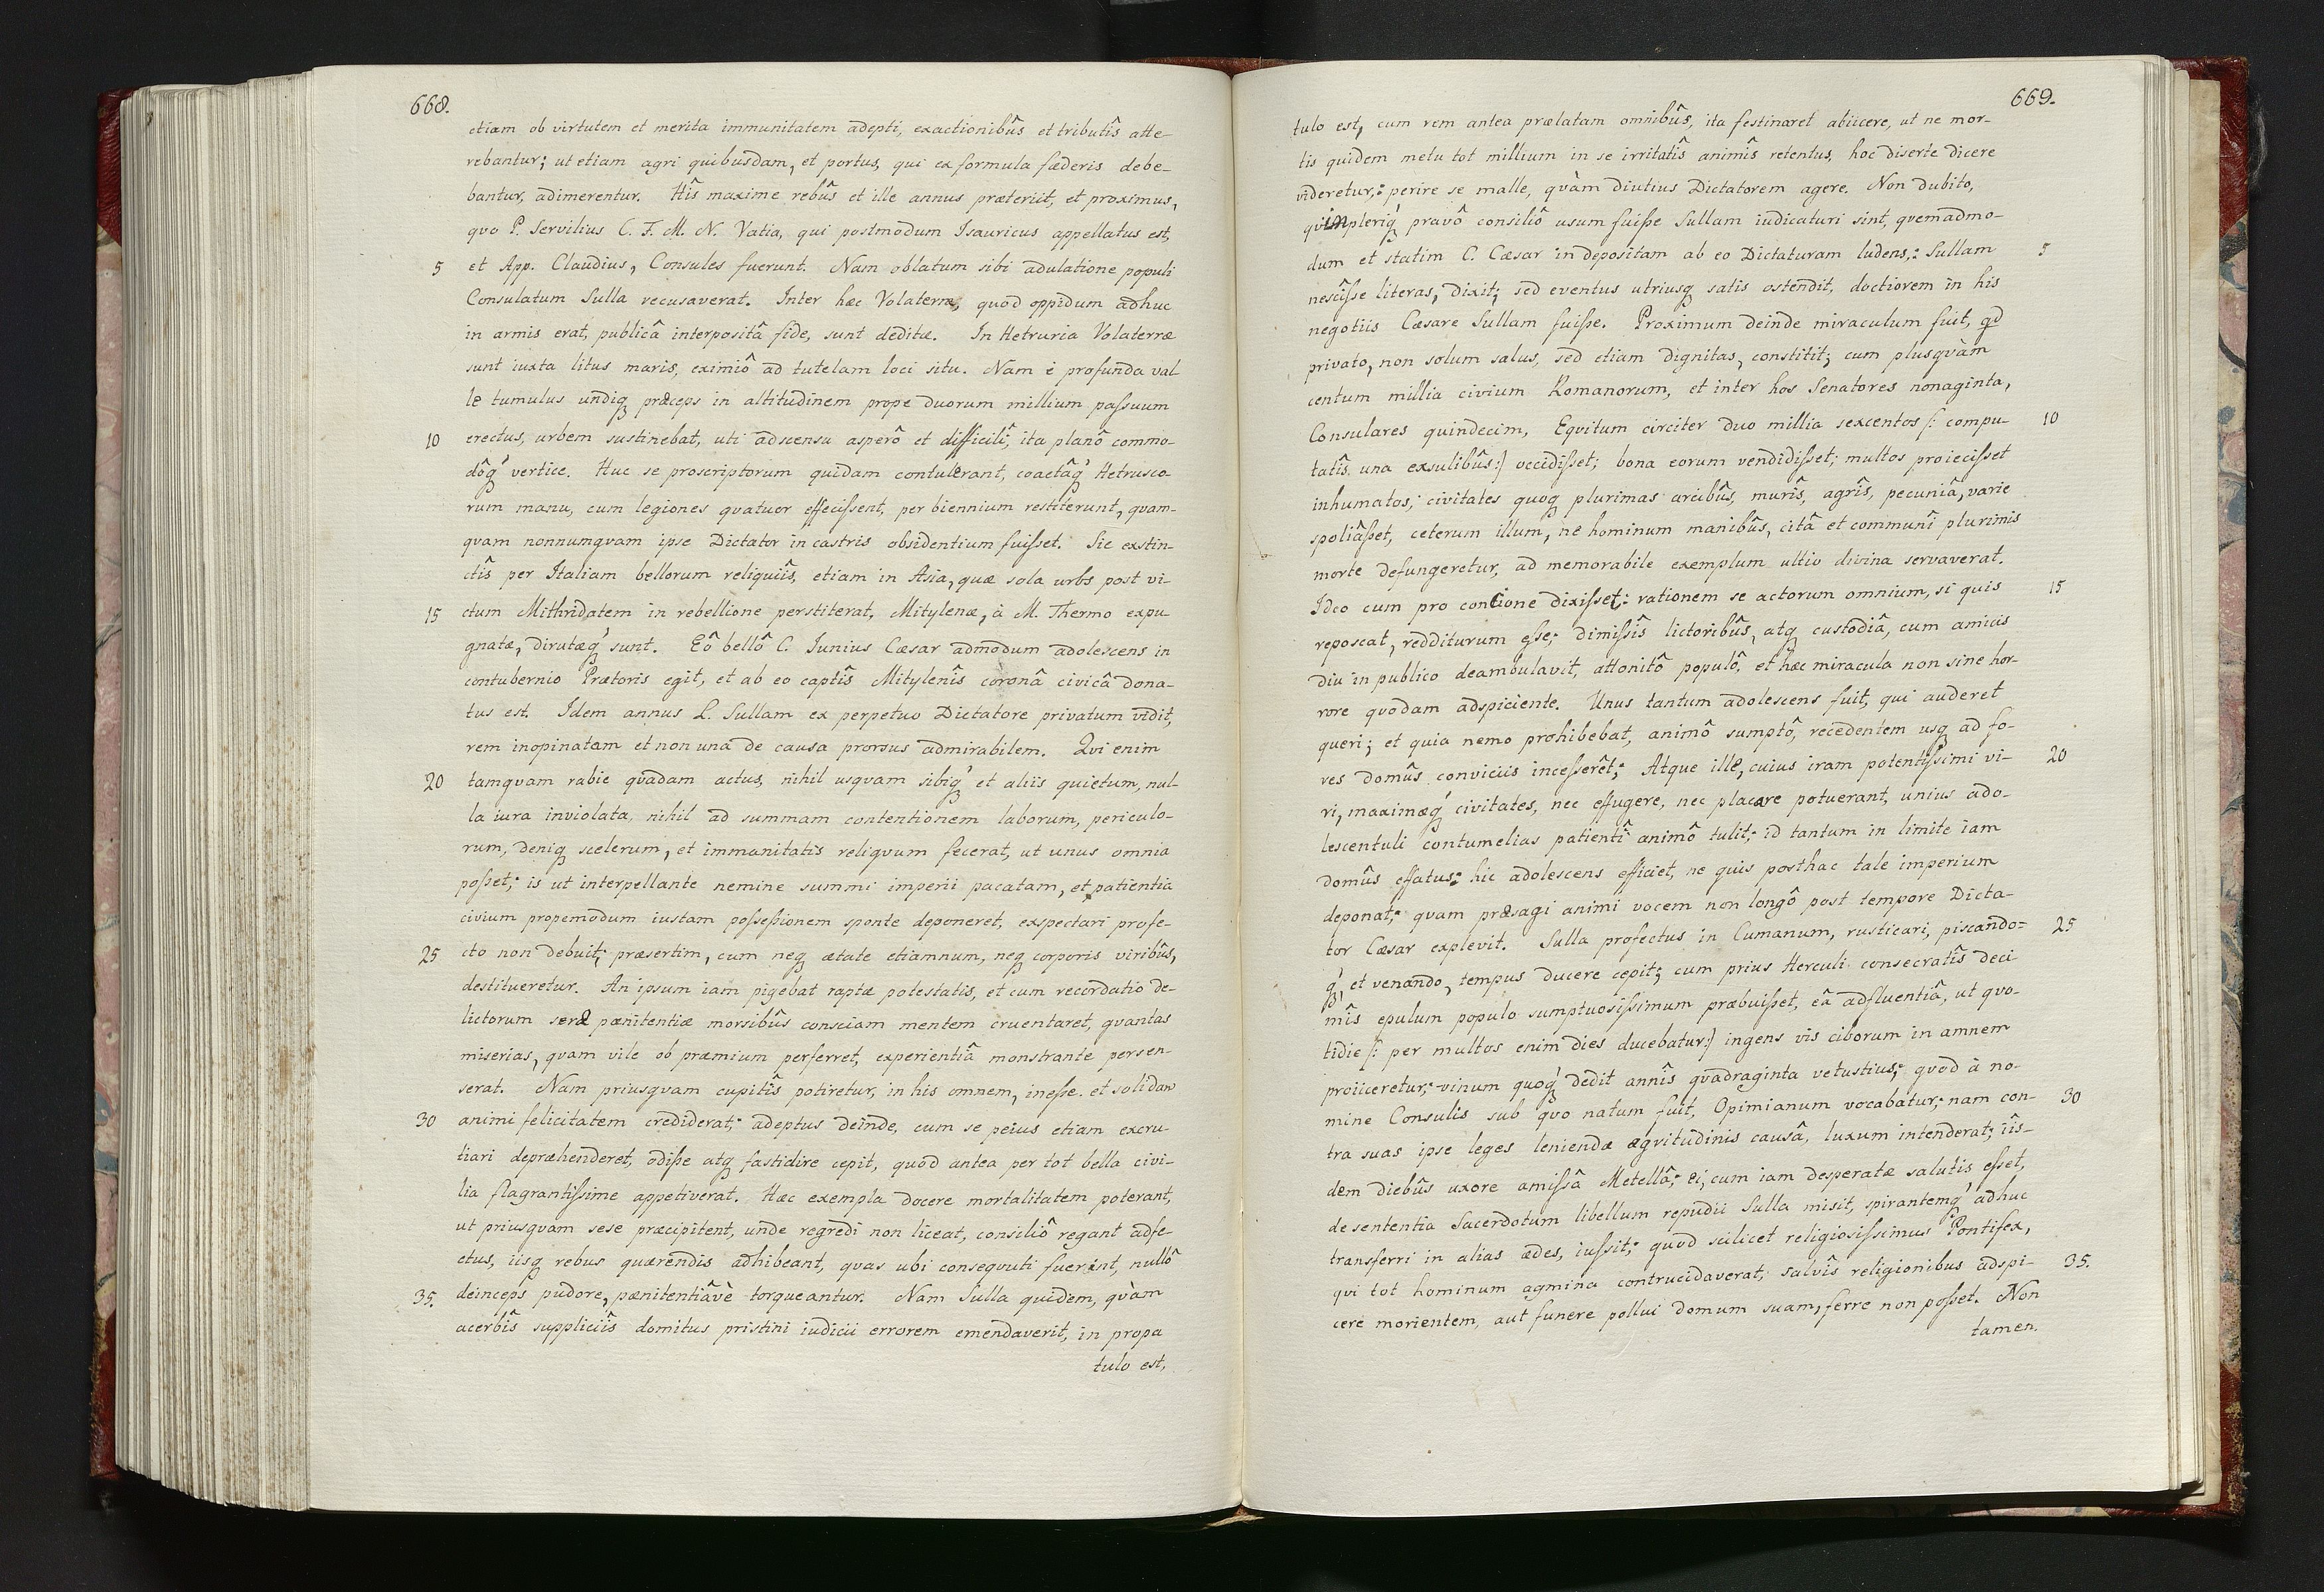 668.
etiam ob virtutem et merita immunitatem adepti, exactionibûs et tributîs atte-
rebantur; ut etiam agri quibusdam, et portus, qui ex formula fæderis debe-
bantur, adimerentur. Hîs maxime rebûs et ille annus præteriit, et proximus,
quo P. Servilius C. F. M. N. Vatia, qui postmodum Isauricus appellatus est,
5 et App. Claudius, Consules fuerunt. Nam oblatum sibi adulatione populi
Consulatum Sulla recusaverat. Inter hæc Volaterræ, quod oppidum adhuc
in armis erat, publicâ interpositâ fide, sunt deditæ. In Hetruria Volaterræ
sunt iuxta litus maris, eximiô ad tutelam loci situ. Nam è profunda val
le tumulus undiq præceps in altitudinem prope duorum millium paſsuum
10 erectus, urbem sustinebat, uti adscensu asperô et difficilî, ita planô commo-
dôq́ vertice. Huc se proscriptorum quidam contulerant, coactâq́ Hetrusco
rum manu, cum legiones quatuor effeciſsent, per biennium restiterunt, quam-
quam nonnumquam ipse Dictator in castris obsidentium fuiſset. Sic exstin-
ctîs per Italiam bellorum reliquiîs, etiam in Asia, quæ sola urbs post vi-
15 ctum Mithridatem in rebellione perstiterat, Mitylenæ, à M. Thermo expu-
gnatæ, dirutæq́ sunt. Eô bellô C. Iunius Cæsar admodum adolescens in
contubernio Prætoris egit, et ab eo captîs Mitylenîs coronâ civicâ dona-
tus est. Idem annus L. Sullam ex perpetuo Dictatore privatum vidit,
rem inopinatam et non una de causa prorsus admirabilem. Qvi enim
20 tamquam rabie quadam actus, nihil usquam sibiq́ et aliis quietum, nul-
la iura inviolata, nihil ad summam contentionem laborum, periculo-
rum, deniq scelerum, et immanitatis reliquum fecerat, ut unus omnia
poſset; is ut interpellante nemine summi imperii pacatam, et patientia
civium propemodum iustam poſseſsionem sponte deponeret, exspectari profe-
25 cto non debuit; præsertim, cum neq ætate etiamnum, neq corporis viribûs,
destitueretur. An ipsum iam pigebat raptæ potestatis, et cum recordatio de-
lictorum seræ pænitentiæ morsibûs consciam mentem cruentaret, quantas
miserias, quam vile ob præmium perferret, experientiâ monstrante persen-
serat. Nam priusquam cupitîs potiretur, in his omnem, ineſse et solidam
30 animi felicitatem crediderat; adeptus deinde, cum se peius etiam excru-
tiari depræhenderet, odiſse atq fastidire cepit, quod antea per tot bella civi-
lia flagrantiſsime appetiverat. Hæc exempla docere mortalitatem poterant,
ut priusquam sese præcipitent, unde regredi non liceat, consiliô regant adfe-
ctus, iisq rebus quærendis adhibeant, quas ubi consequuti fuerint, nullô
35. deinceps pudore, pænitentiâvè torqueantur. Nam Sulla quidem, quàm
acerbîs suppliciîs domitus pristini iudicii errorem emendaverit, in propa
tulo est,
669.
tulo est, cum rem antea prælatam omnibûs, ita festinaret abiicere, ut ne mor-
tis quidem metu tot millium in se irritatîs animîs retentus, hoc diserte dicere
videretur,: perire se malle, quàm diutius Dictatorem agere. Non dubito,
quin pleriq́ pravô consiliô usum fuiſse Sullam iudicaturi sint, quemadmo-
dum et statim C. Cæsar in depositam ab eo Dictaturam ludens,: Sullam 5
nescîſse literas, dixit; sed eventus utriusq satis ostendit, doctiorem in his
negotiis Cæsare Sullam fuiſse. Proximum deinde miraculum fuit, qd
privato, non solum salus, sed etiam dignitas, constitit; cum plusquàm
centum millia civium Romanorum, et inter hos Senatores nonaginta,
Consulares quindecim, Equitum circiter duo millia sexcentos /: compu- 10
tatîs una exsulibûs:/ occidiſset; bona eorum vendidiſset; multos proieciſset
inhumatos; civitates quoq plurimas arcibûs, murîs, agrîs, pecuniâ, varie
spoliâſset, ceterum illum, ne hominum manibûs, citâ et communî plurimis
morte defungeretur, ad memorabile exemplum ultio divina servaverat.
Ideo cum pro concione dixiſset,: rationem se actorum omnium, si quis 15
reposcat, redditurum eſse; dimiſsîs lictoribûs, atq custodiâ, cum amicis
diu in publico deambulavit, attonitô populô, et hæc miracula non sine hor-
rore quodam adspiciente. Unus tantum adolescens fuit, qui auderet
queri; et quia nemo prohibebat, animô sumptô, recedentem usq ad fo-
res domûs conviciis inceſserêt; Atque ille, cuius iram potentiſsimi vi- 20
ri, maximæq́ civitates, nec effugere, nec placare potuerant, unius ado-
lescentuli contumelias patientî animô tulit; id tantum in limite iam
domûs effatus: hic adolescens efficiet, ne quis posthac tale imperium
deponat; quam præsagi animi vocem non longô post tempore Dicta-
tor Cæsar explevit. Sulla profectus in Cumanum, rusticari, piscando= 25
q́, et venando, tempus ducere cepit; cum prius Herculi consecratîs deci
mîs epulum populo sumptuosiſsimum præbuiſset, eâ adfluentiâ, ut quo-
tidie /: per multos enim dies ducebatur:/ ingens vis ciborum in amnem
proiiceretur; vinum quoq́ dedit annîs quadraginta vetustius; quod à no-
mine Consulis sub quo natum fuit, Opimianum vocabatur; nam con- 30
tra suas ipse leges leniendæ ægritudinis causâ, luxum intenderat; iîs-
dem diebûs uxore amiſsâ Metellâ; ei, cum iam desperatæ salutis eſset,
de sententia Sacerdotum libellum repudii Sulla misit, spirantemq́ adhuc
transferri in alias ædes, iuſsit; quod scilicet religiosiſsimus Pontifex,
qui tot hominum agmina contrucidaverat, salvîs religionibus adspi- 35.
cere morientem, aut funere pollui domum suam, ferre non poſset. Non
tamen.